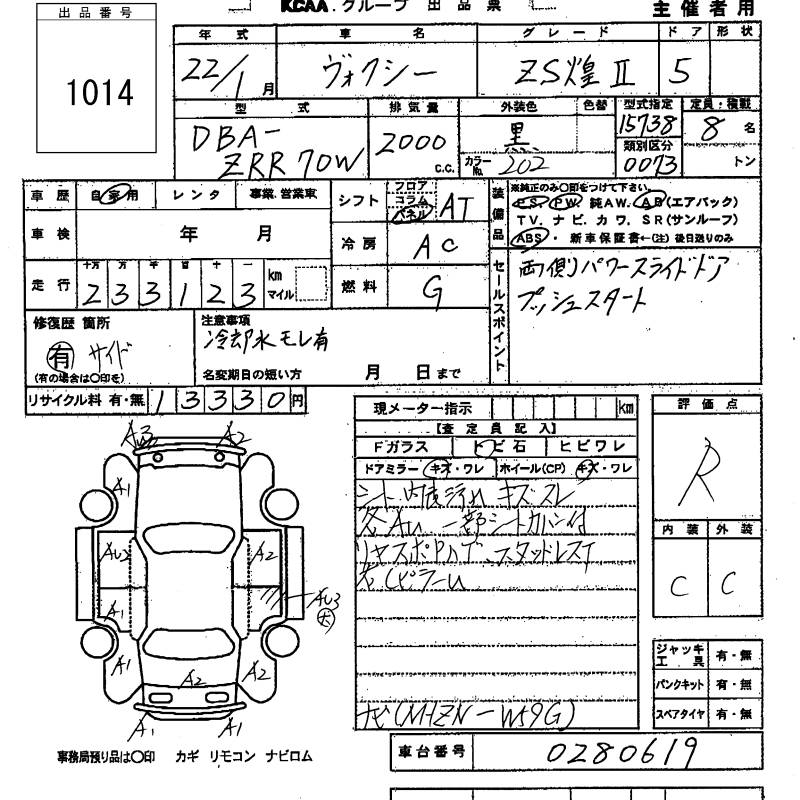 出品番号
1014
KCAA.グループ 出品票
主催者用
年式 車名 グレード ドア 形状
22/1月 ヴォクシー ZS煌Ⅱ 5
型式 排気量 外装色 色替 型式指定 定員・積載
DBA-ZRR70W 2000 c.c. 黒 15738 8名
カラーNo. 202 類別区分 0073 トン
車歴 自家用 レンタ 事業.営業車
シフト フロア コラム パネル AT
装備品 ※純正のみ○印をつけて下さい。
P.S. PW. 純AW. AB(エアバック)
TV. ナビ. カワ. SR(サンルーフ)
ABS・新車保証書←(注)後日送りのみ
車検 年 月
冷房 AC
走行 十万 万 千 百 十 一
233123 km マイル
燃料 G
セールスポイント
両側パワースライドドア
プッシュスタート
修復歴 箇所
有 サイド
(有の場合は○印を)
注意事項
冷却水モレ有
名変期日の短い方 月 日まで
リサイクル料 有・無 13330円
現メーター指示 km
【査定員記入】
Fガラス トビ石 ヒビワレ
ドアミラー キズ・ワレ ホイール(CP) キズ・ワレ
シート内張汚れ キズスレ
各AU 一部シートカバー付
スタッドレスT
ナビ(MHZN-W59G)
評価点
R
内装 外装
C C
ジャッキ工具 有・無
パンクキット 有・無
スペアタイヤ 有・無
A3 A2
A1
AU2 A2
A1 AU3
大
A1 A2 A2
A1 A1
事務局預り品は○印 カギ リモコン ナビロム
車台番号 0280619